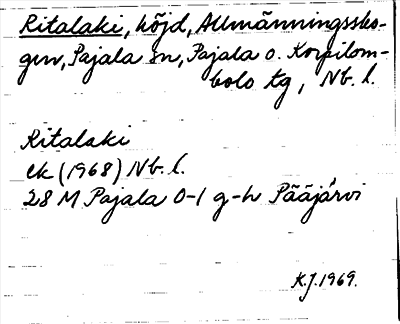 Ritalaki, höjd, Allmänningssko-
gen, Pajala sn, Pajala o. Korpilom-
bolo tg, Nb. l.
Ritalaki
ek (1968) Nb. l.
28 M Pajala 0-1 g-h Pääjärvi
K.J. 1969.